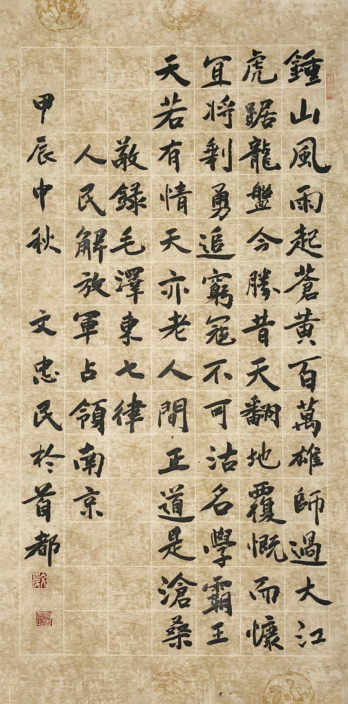 鍾山風雨起蒼黄百萬雄師過大江
虎踞龍盤今勝昔天翻地覆慨而慷
宜将剩勇追窮寇不可沽名學霸王
天若有情天亦老人間正道是滄桑
敬錄毛澤東七律
人民解放軍占領南京
甲辰中秋 文忠民於首都